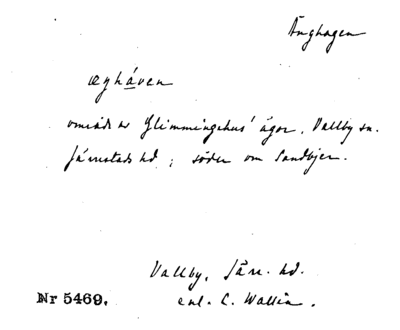 Änghagen
æŋháven
område av Glimmingehus' ägor, Vallby sn.
Järrestads hd; söder om Sandbjer.
Vallby, Järr. hd.
Nr 5469.
enl. C. Wallin.